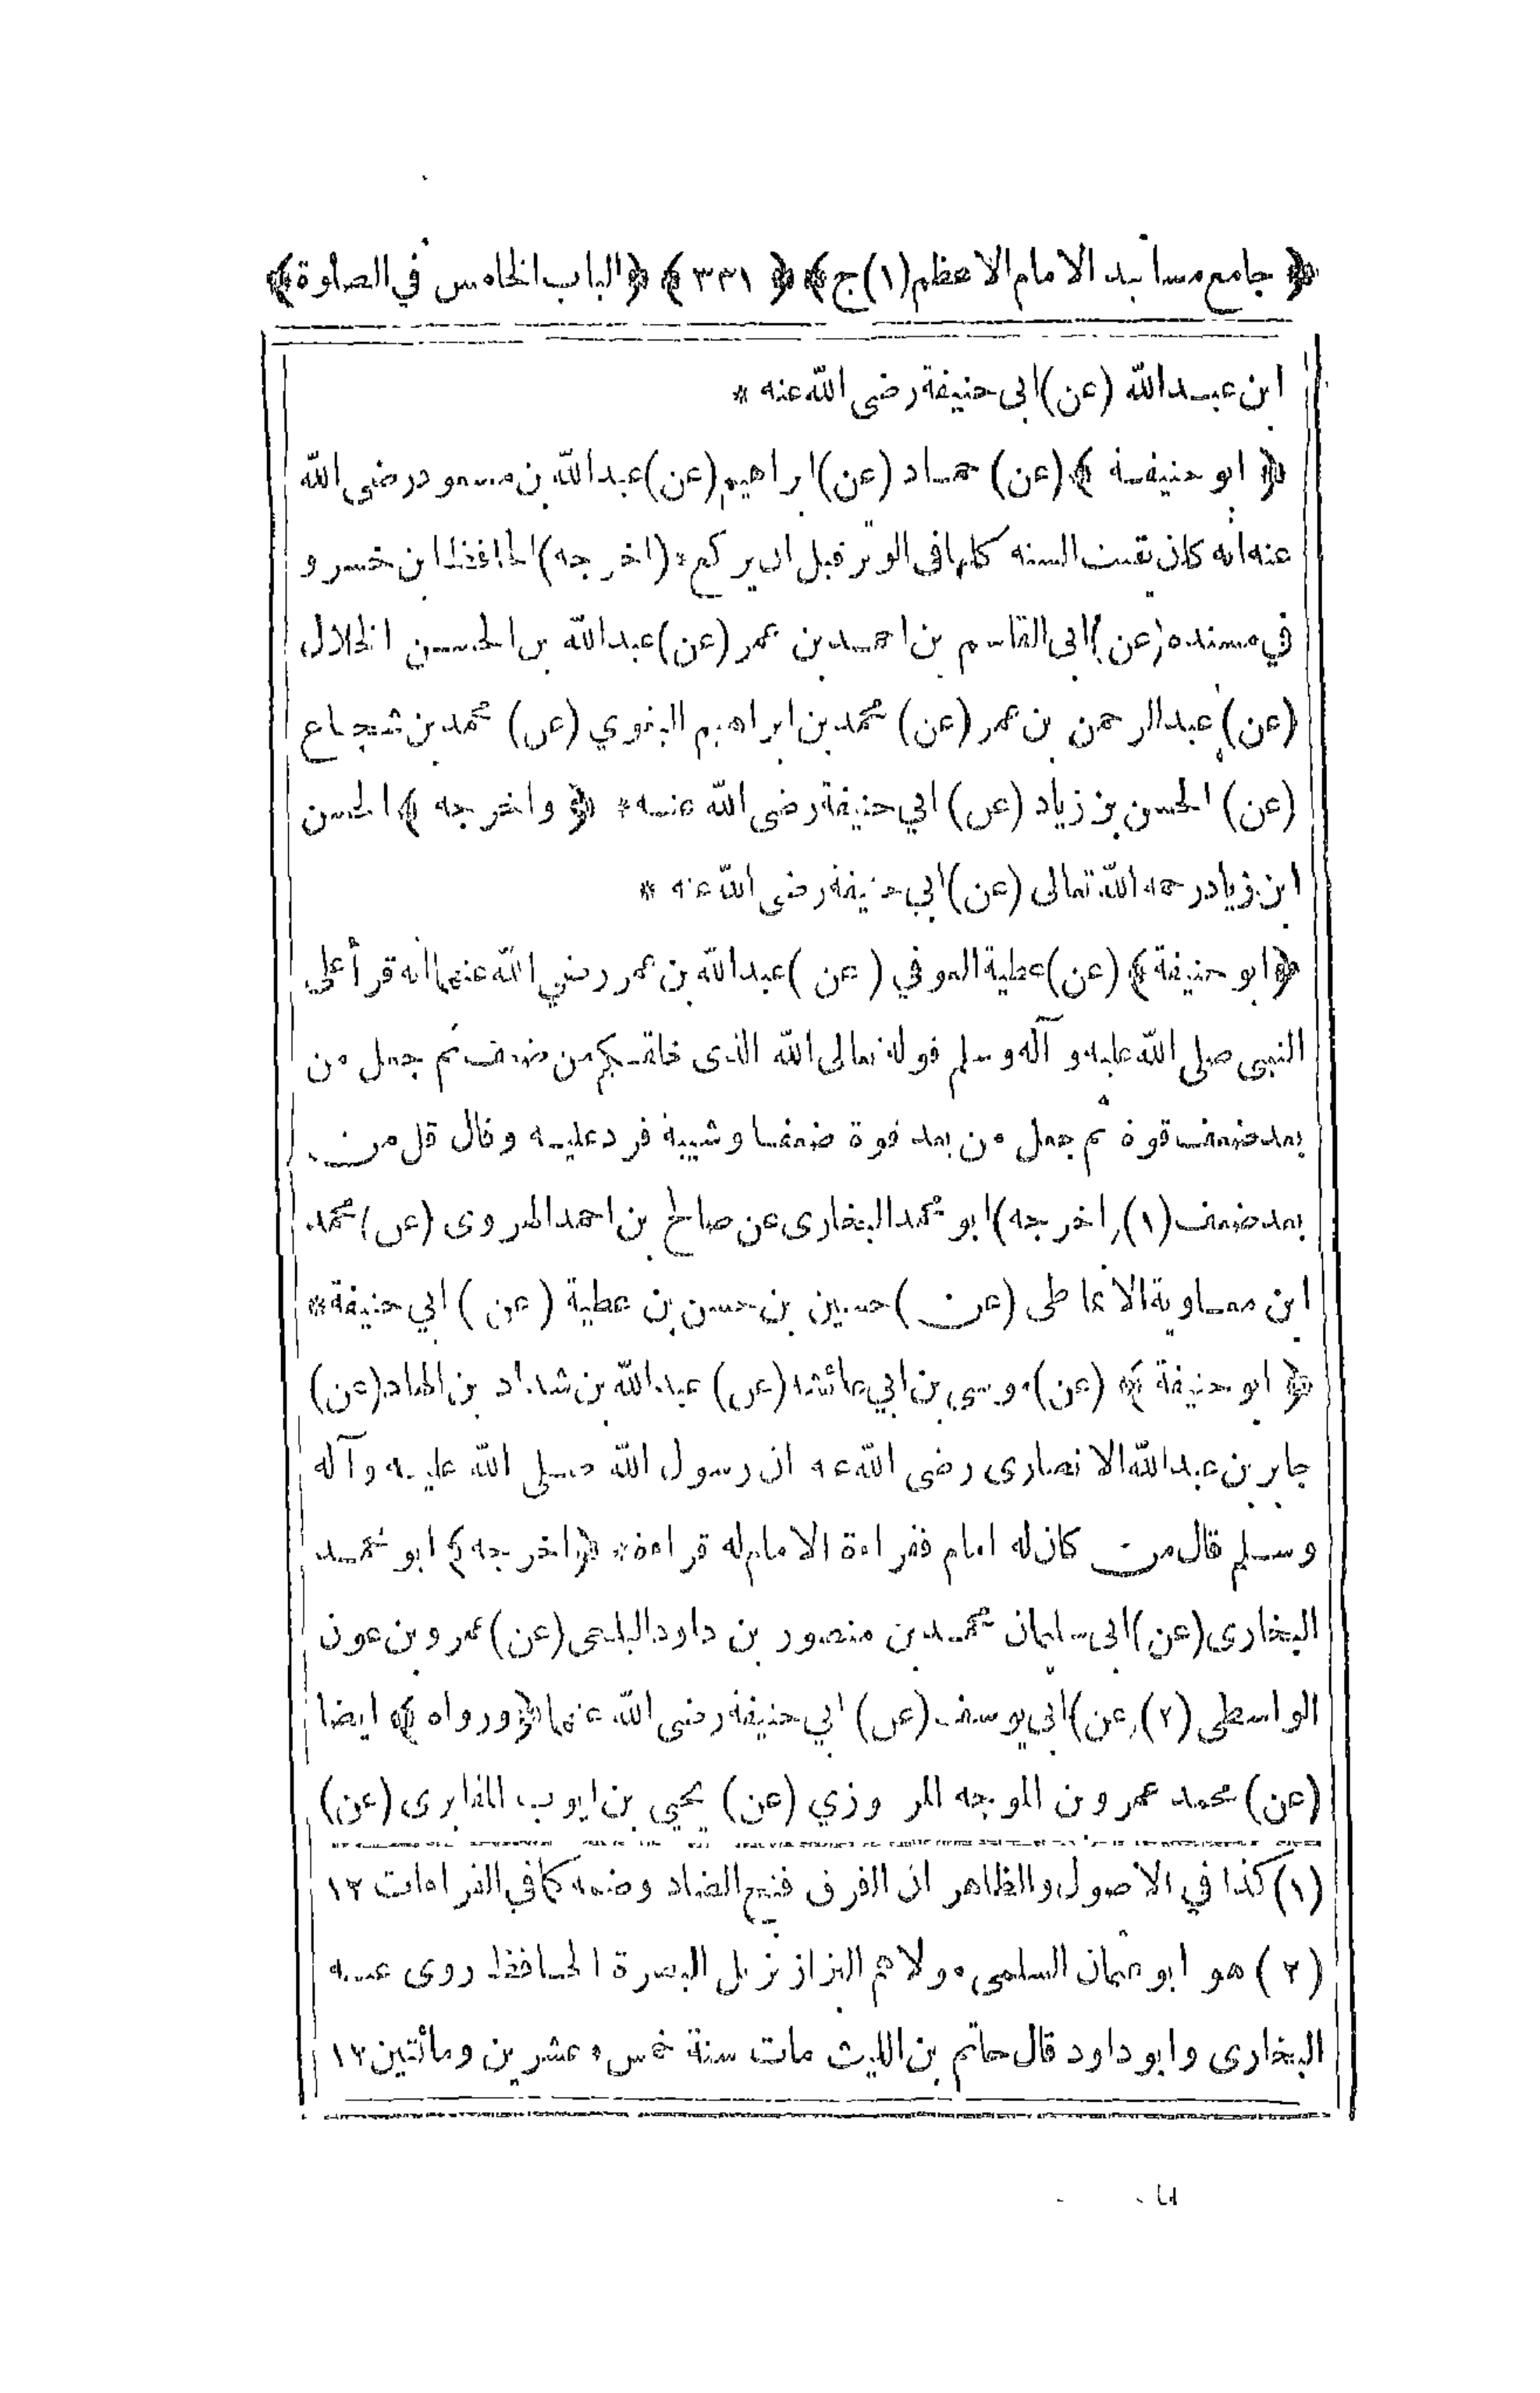 ﴿ جامع مسانيد الامام الاعظم (١) ج ﴾ ﴿ ٣٣١ ﴾ ﴿ الباب الخامس في الصلوة ﴾
ابن عبد الله (عن) ابى حنيفة رضى الله عنه *
﴿ ابو حنيفة ﴾ (عن) حماد (عن) ابراهيم (عن) عبد الله بن مسعود رضى الله
عنه انه كان يقنت السنه كلها فى الوتر قبل ان يركع * (اخرجه) الحافظ ابن خسرو
في مسنده (عن) ابى القاسم بن احمد بن عمر (عن) عبد الله بن الحسن الخلال
(عن) عبد الرحمن بن عمر (عن) محمد بن ابراهيم البغوي (عن) محمد بن شجاع
(عن) الحسن بن زياد (عن) ابي حنيفة رضى الله عنه * ﴿ واخرجه ﴾ الحسن
ابن زياد رحمه الله تعالى (عن) ابي حنيفة رضى الله عنه *
﴿ ابو حنيفة ﴾ (عن) عطية العوفي (عن) عبد الله بن عمر رضي الله عنهما انه قرأ على
النبى صلى الله عليه و آله وسلم قوله تعالى الله الذى خلقكم من ضعف ثم جعل من
بعد ضعف قوة ثم جعل من بعد قوة ضعفا وشيبة فرد عليه وقال قل من
بعد ضعف (١) (اخرجه) ابو محمد البخارى عن صالح بن احمد الهروى (عن) محمد
ابن معاوية الانماطى (عن) حسين بن حسن بن عطية (عن) ابي حنيفة *
﴿ ابو حنيفة ﴾ (عن) موسى بن ابي عائشة (عن) عبد الله بن شداد بن الهاد (عن)
جابر بن عبد الله الانصارى رضى الله عنه ان رسول الله صلى الله عليه وآله
وسلم قال من كان له امام فقراءة الامام له قراءة * ﴿ اخرجه ﴾ ابو محمد
البخارى (عن) ابى سليمان محمد بن منصور بن داود البلخى (عن) عمرو بن عون
الواسطى (٢) (عن) ابي يوسف (عن) ابي حنيفة رضى الله عنهما ﴿ ورواه ﴾ ايضا
(عن) محمد عمرو بن الموجه المروزي (عن) يحيى بن ايوب المقابرى (عن)
(١) كذا في الاصول والظاهر ان الفرق فتح الضاد وضمه كما في القراءات ١٢
(٢) هو ابو عثمان السلمى مولاهم البزاز نزيل البصرة الحافظ روى عنه
البخارى وابو داود قال حاتم بن الليث مات سنة خمس وعشرين ومائتين ١٢